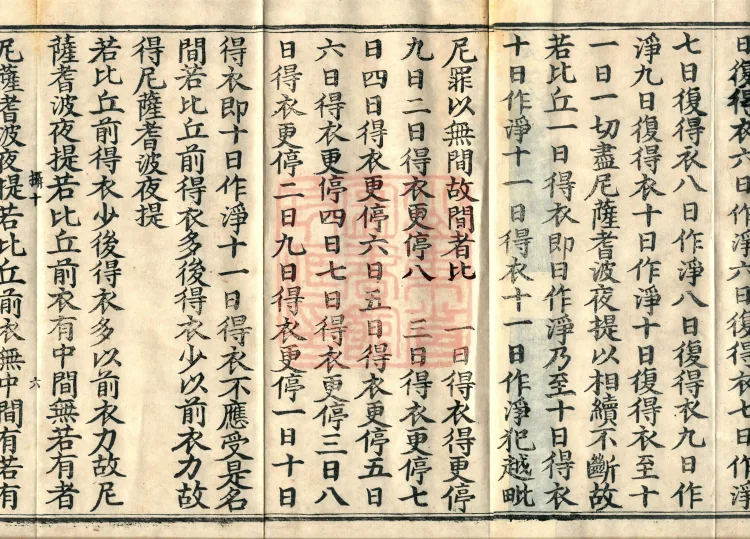 日復得衣六日作淨六日復得衣七日作淨
七日復得衣八日作淨八日復得衣九日作
淨九日復得衣十日作淨十日復得衣至十
一日一切盡尼薩耆波夜提以相續不斷故
若比丘一日得衣即日作淨乃至十日得衣
十日作淨十一日得衣十一日作淨犯越毗
尼罪以無間故間者比 一日得衣得更停
九日二日得衣更停八 三日得衣更停七
日四日得衣更停六日五日得衣更停五日
六日得衣更停四日七日得衣更停三日八
日得衣更停二日九日得衣更停一日十日
得衣即十日作淨十一日得衣不應受是名
間若比丘前得衣多後得衣少以前衣力故
得尼薩耆波夜提
若比丘前得衣少後得衣多以前衣力故尼
薩耆波夜提若比丘前衣有中間無若有者
十 六
尼薩耆波夜提若比丘前衣無中間有若有